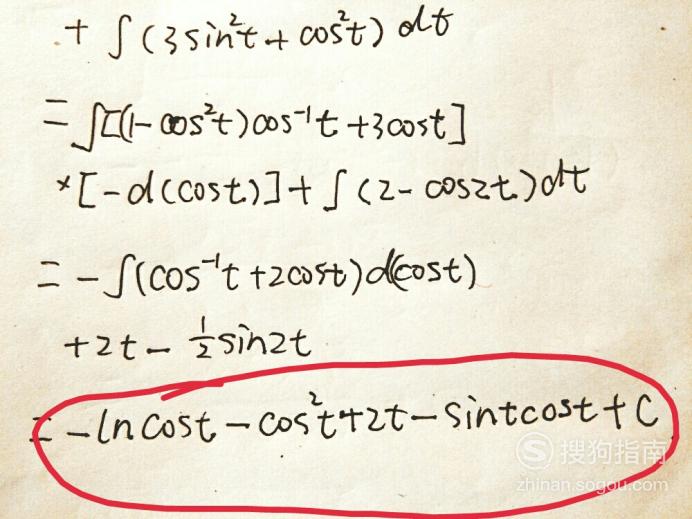 + ∫(3sin²t + cos²t) dt
= ∫[(1-cos²t)cos⁻¹t + 3cost]
*[-d(cost)] + ∫(2-cos2t)dt
= -∫(cos⁻¹t + 2cost)d(cost)
+2t - 1/2 sin2t
= -lncost - cos²t + 2t - sintcost + C
S 搜狗指南
zhinan.sogou.com